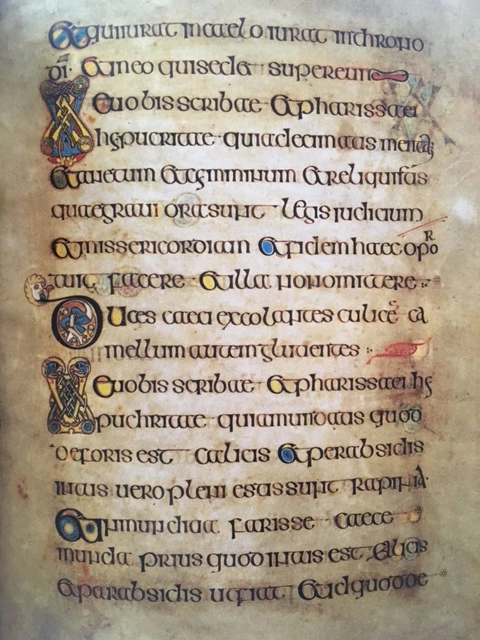 Et qui iurat in caelo iurat in throno
di Et in eo qui sedet super eum
Vae uobis scribae Et pharissaei
hypucritae quia decimatis mentã
Et anetum Et cyminum Et reliquistis
quae grauiora sunt Legis iudicium
Et missericordiam Et fidem haec opor
tuit facere Et illa non omittere
Duces caeci excolantes culicẽ ca
mellum autem glutientes
Vae uobis scribae Et pharissaei hy
puchritae quia mundatis quod
deforis est calicis Et perabsidis
intus uero pleni estis sunt rapina
Et inmunditia farisse caece
munda prius quod intus est calicis
Et parabsidis ut fiat Et id quod de